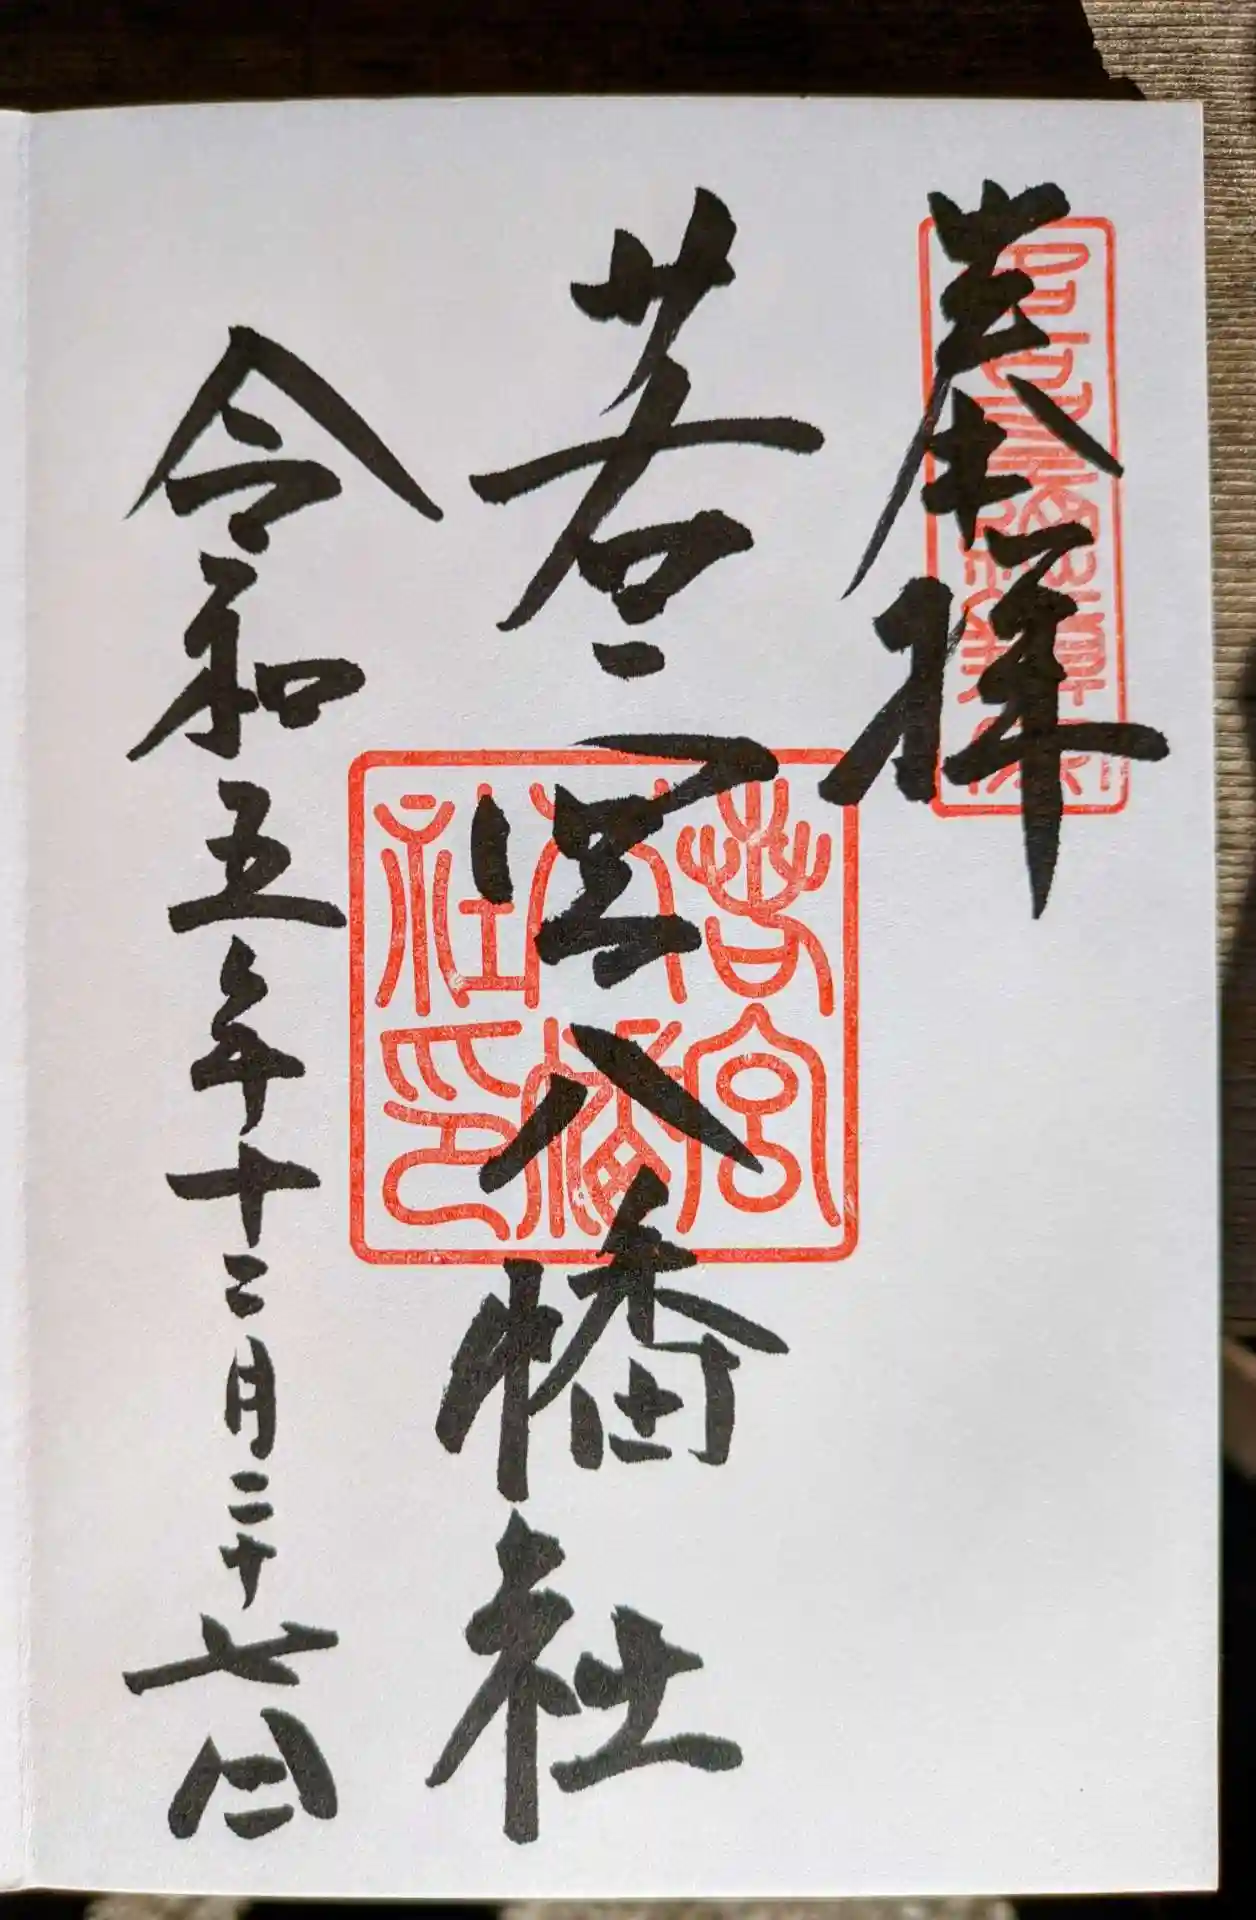 奉拝
若宮八幡社
若宮
八幡
社印
令和五年十二月二十七日